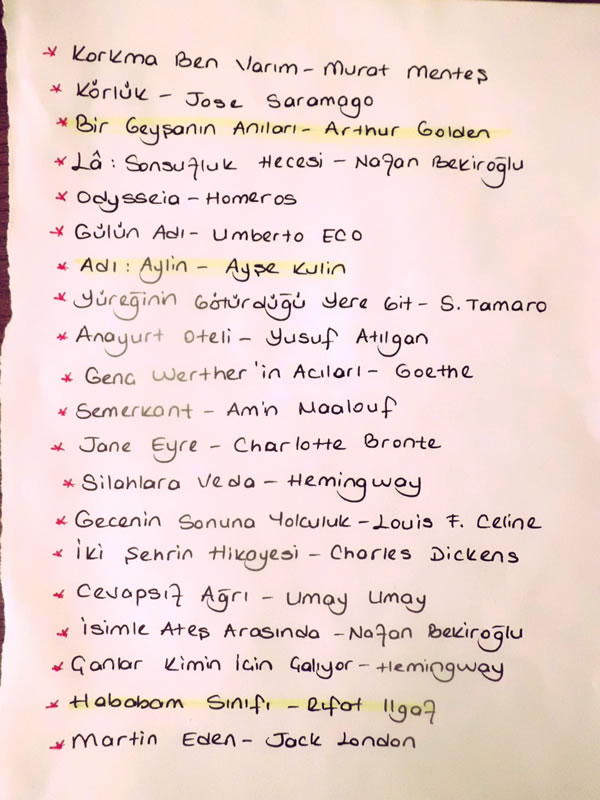 * Korkma Ben Varım - Murat Menteş
* Körlük - Jose Saramago
* Bir Geyşanın Anıları - Arthur Golden
* Lâ: Sonsuzluk Hecesi - Nazan Bekiroğlu
* Odysseia - Homeros
* Gülün Adı - Umberto ECO
* Adı: Aylin - Ayşe Kulin
* Yüreğinin Götürdüğü Yere Git - S. Tamaro
* Anayurt Oteli - Yusuf Atılgan
* Genç Werther'in Acıları - Goethe
* Semerkant - Amin Maalouf
* Jane Eyre - Charlotte Bronte
* Silahlara Veda - Hemingway
* Gecenin Sonuna Yolculuk - Louis F. Celine
* İki Şehrin Hikayesi - Charles Dickens
* Cevapsız Ağrı - Umay Umay
* İsimle Ateş Arasında - Nazan Bekiroğlu
* Çanlar Kimin İçin Çalıyor - Hemingway
* Hababam Sınıfı - Rıfat Ilgaz
* Martin Eden - Jack London